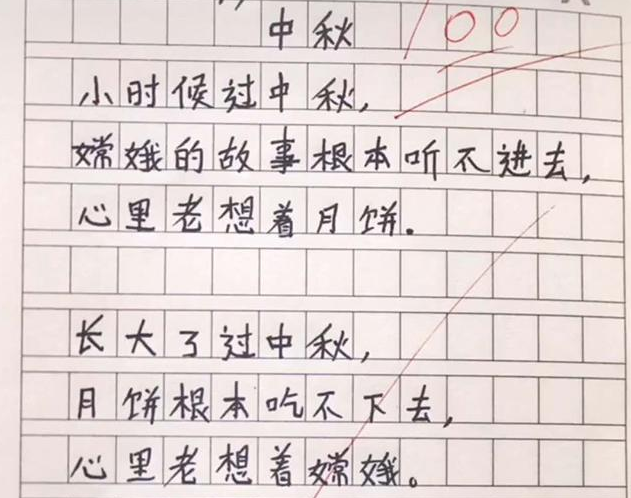 中秋 100
小时候过中秋,
嫦娥的故事根本听不进去,
心里老想着月饼.
长大了过中秋,
月饼根本吃不下去,
心里老想着嫦娥。